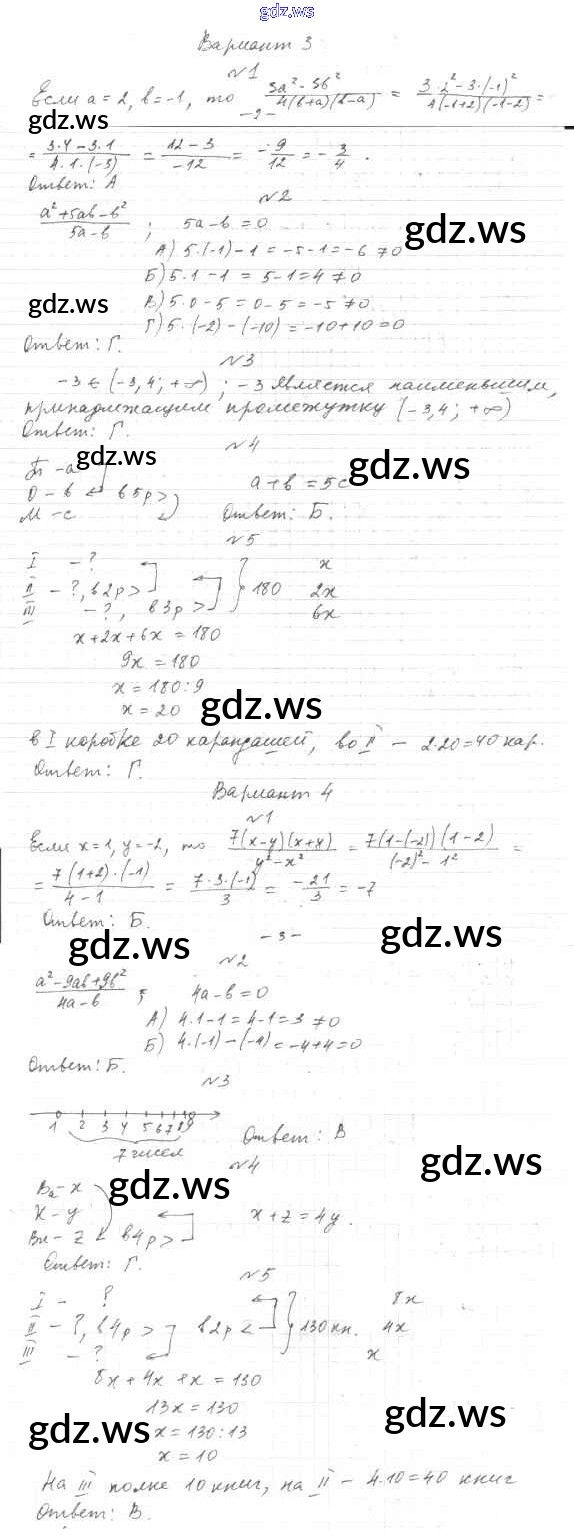 gdz.ws
Вариант 3
№1
Если a = 2, b = -1, то (3a² - 3b²)/(4(b+a)(b-a)) = (3·2² - 3·(-1)²)/(4(-1+2)(-1-2)) =
gdz.ws
-2-
= (3·4 - 3·1)/(4·1·(-3)) = (12 - 3)/(-12) = -9/12 = -3/4 .
Ответ: А
№2
(a² + 5ab - b²)/(5a - b) ; 5a - b = 0
gdz.ws
А) 5·(-1) - 1 = -5 - 1 = -6 ≠ 0
Б) 5·1 - 1 = 5 - 1 = 4 ≠ 0
gdz.ws
В) 5·0 - 5 = 0 - 5 = -5 ≠ 0
Г) 5·(-2) - (-10) = -10 + 10 = 0
Ответ: Г.
№3
-3 ∈ (-3,4; +∞) ; -3 является наименьшим,
принадлежащим промежутку (-3,4; +∞)
Ответ: Г.
№4
gdz.ws
gdz.ws
П - a
О - b в 5р >
a + b = 5c
М - c
Ответ: Б.
№5
I - ? x
II - ?, в 2р > 180 2x
III - ?, в 3р > 6x
x + 2x + 6x = 180
9x = 180
x = 180 : 9
x = 20
gdz.ws
в I коробке 20 карандашей, во II - 2·20 = 40 кар.
Ответ: Г.
Вариант 4
№1
Если x = 1, y = -2, то (7(x-y)(x+y))/(y² - x²) = (7(1-(-2))(1-2))/((-2)² - 1²) =
= (7(1+2)·(-1))/(4-1) = (7·3·(-1))/3 = -21/3 = -7
Ответ: Б.
gdz.ws
gdz.ws
-3-
№2
(a² - 9ab + 9b²)/(4a - b) ; 4a - b = 0
А) 4·1 - 1 = 4 - 1 = 3 ≠ 0
Б) 4·(-1) - (-4) = -4 + 4 = 0
Ответ: Б.
№3
1 2 3 4 5 6 7 8 9
7 чисел
Ответ: В
№4
gdz.ws
gdz.ws
Ва - x
К - y
x + z = 4y.
Вл - z в 4р >
Ответ: Г.
№5
I - ? 8x
II - ?, в 4р > в 2р < 130 кн. 4x
III - ? x
8x + 4x + x = 130
13x = 130
gdz.ws
gdz.ws
x = 130 : 13
x = 10
На III полке 10 книг, на II - 4·10 = 40 книг
Ответ: В.